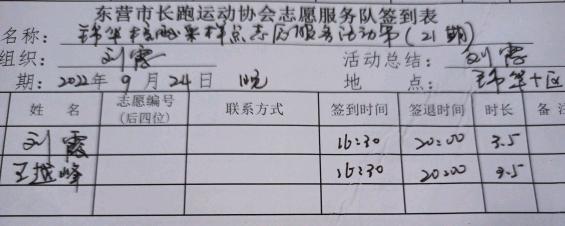 东营市长跑运动协会志愿服务队签到表
名称: 锦华核酸采样点志愿服务活动第(21期)
组织: 刘霞 活动总结: 刘霞
期: 2022年9月24日 晚 地点: 锦华十区
姓名 志愿编号(后四位) 联系方式 签到时间 签退时间 时长 备注
刘霞 16:30 20:00 3.5
王越峰 16:30 20:00 3.5